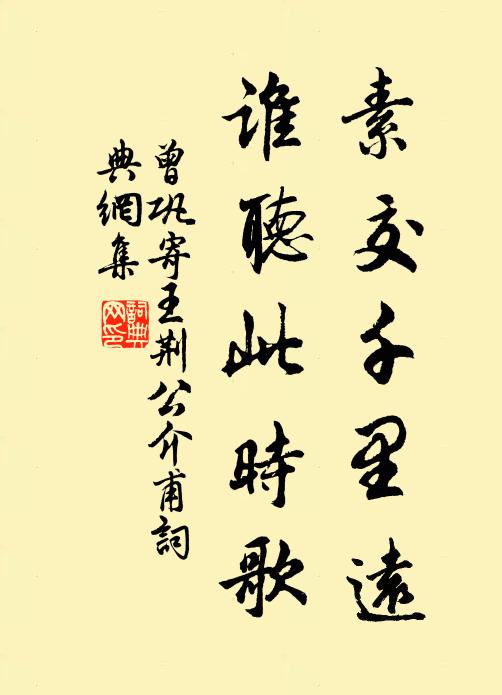 素交千里遠
誰聽此時歌
曾巩寄王荆公介甫詞
典網集
詞典网印